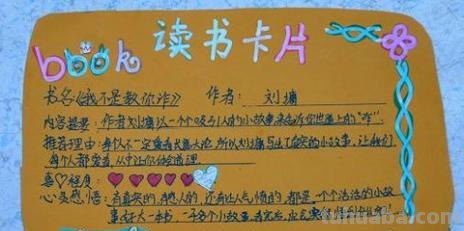 book 读书卡片
书名《我不是教你诈》 作者: 刘墉
内容提要: 作者刘墉以一个个吸引人的小故事来告诉你世道上的"诈".
推荐理由: 每人不一定要有大篇大论,所以刘墉写出了有哭的小故事,让我们
每个人都爱看,从中让你们会道理.
喜♡程度:
心灵感悟: 有真哭的,感人的,还有让人气愤的,都是一个个活活的小故
事,好大一本书,一百多个小故事,看完后,
tuhuaba.com